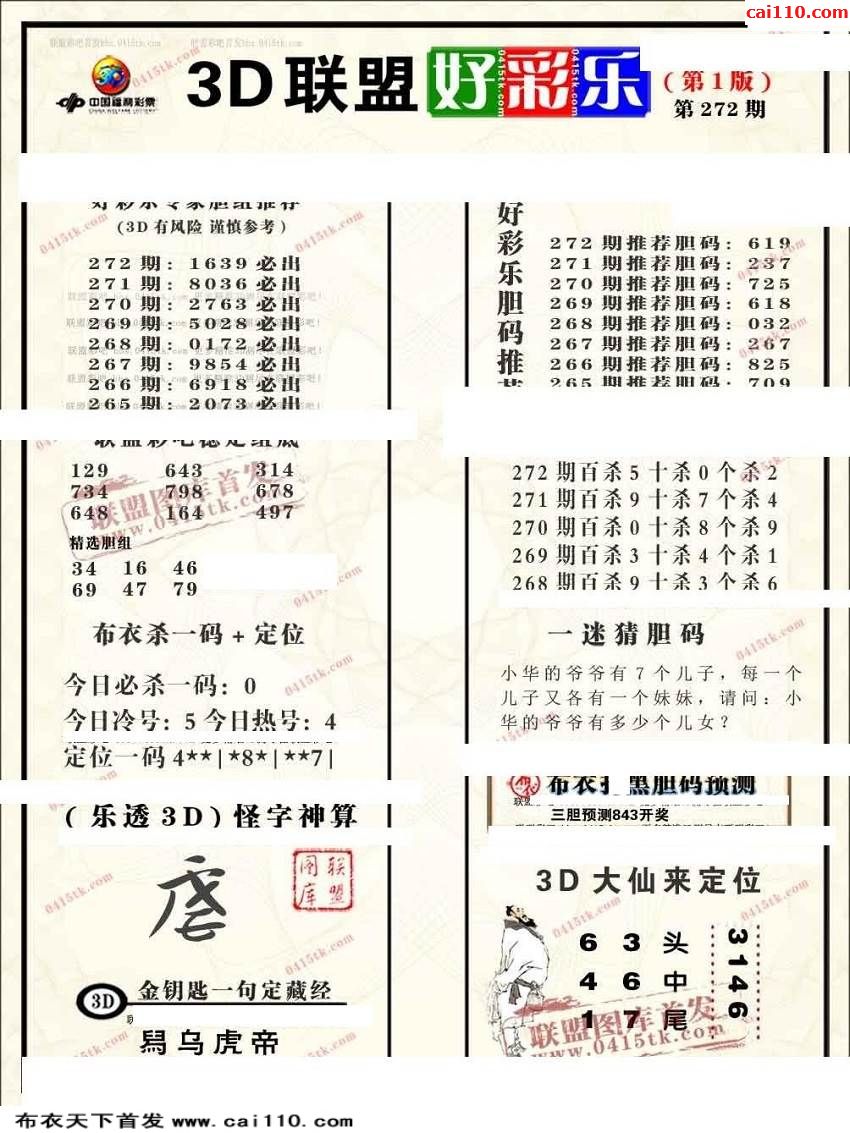 cai110.com
联盟彩吧首发bbs.0415tk.com
中国福利彩票
CHINA WELFARE LOTTERY
3D联盟好彩乐
0415tk.com
0415tk.com
0415tk.com
(第1版)
第272期
好彩乐专家胆组推荐
(3D有风险 谨慎参考)
272期: 1639必出
271期: 8036必出
270期: 2763必出
269期: 5028必出
268期: 0172必出
267期: 9854必出
266期: 6918必出
265期: 2073必出
好彩乐胆码推荐
272期推荐胆码: 619
271期推荐胆码: 237
270期推荐胆码: 725
269期推荐胆码: 618
268期推荐胆码: 032
267期推荐胆码: 267
266期推荐胆码: 825
265期推荐胆码: 709
联盟彩吧稳定组底
129 643 314
734 798 678
648 164 497
联盟图库首发
www.0415tk.com
精选胆组
34 16 46
69 47 79
272期百杀5十杀0个杀2
271期百杀9十杀7个杀4
270期百杀0十杀8个杀9
269期百杀3十杀4个杀1
268期百杀9十杀3个杀6
布衣杀一码+定位
今日必杀一码: 0
今日冷号: 5 今日热号: 4
定位一码4**|*8*|**7|
一迷猜胆码
小华的爷爷有7个儿子，每一个
儿子又各有一个妹妹，请问：小
华的爷爷有多少个儿女？
(乐透3D)怪字神算
联盟图库
3D
金钥匙一句定藏经
舄乌虎帝
三胆预测843开奖
3D大仙来定位
6 3 头
4 6 中
1 7 尾
3146
联盟图库首发
www.0415tk.com
布衣天下首发 www.cai110.com